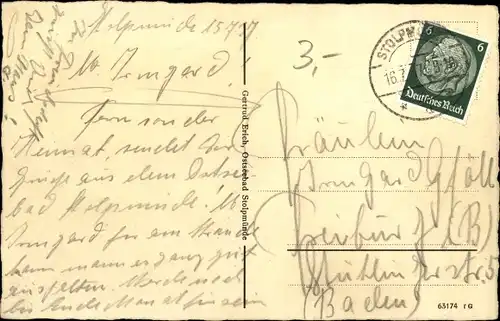 Stolpmünde 15.7.37
Lb. Irmgard!
Fern von der
Heimat, sendet Dir
Grüße aus dem Ostsee-
bad Stolpmünde! Lb.
Irmgard hier am Strande
kann man es ganz gut
aushalten. Werde noch
bis Ende Monat hier sein
Gertrud Erich, Ostseebad Stolpmünde
3,-
STOLPMÜ
16.7.
6 6
Deutsches Reich
Fräulein
Irmgard
Freiburg i/(B)
str. 5
(Baden)
63174 t G